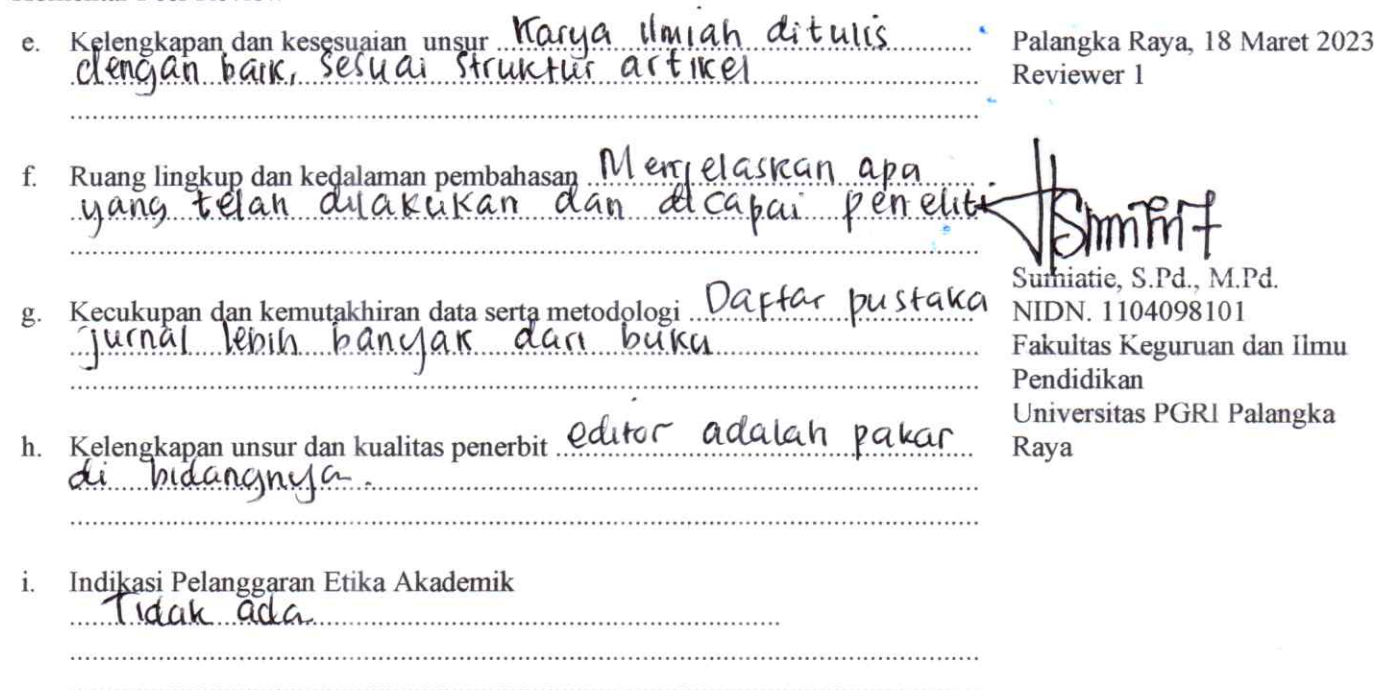 e. Kelengkapan dan kesesuaian unsur Karya Ilmiah ditulis
dengan baik, sesuai struktur artikel
f. Ruang lingkup dan kedalaman pembahasan Menjelaskan apa
yang telah dilakukan dan dicapai peneliti
g. Kecukupan dan kemutakhiran data serta metodologi Daftar pustaka
jurnal lebih banyak dari buku
h. Kelengkapan unsur dan kualitas penerbit editor adalah pakar
di bidangnya.
i. Indikasi Pelanggaran Etika Akademik
Tidak ada
Palangka Raya, 18 Maret 2023
Reviewer 1
Sumiatie, S.Pd., M.Pd.
NIDN. 1104098101
Fakultas Keguruan dan Ilmu
Pendidikan
Universitas PGRI Palangka
Raya